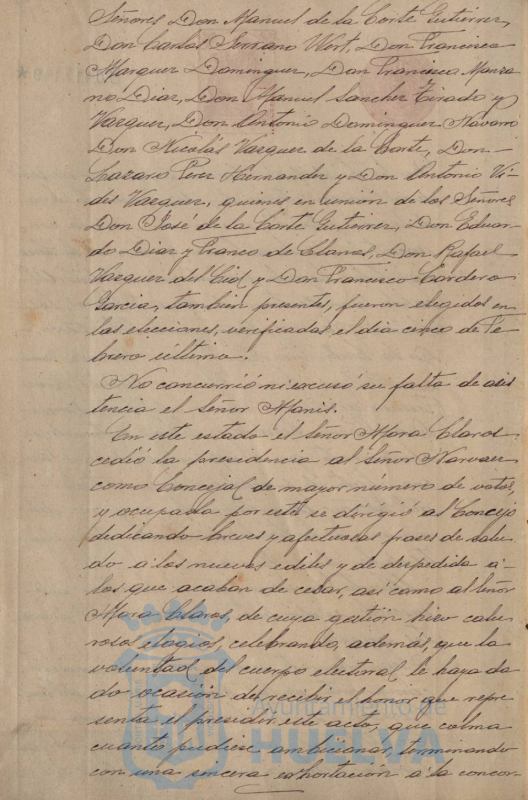 Señores Don Manuel de la Corte Gutierrez,
Don Carlos Serrano Wert, Don Francisco
Marquez Dominguez, Don Francisco Manza
no Diaz, Don Manuel Sanchez Tirado y
Vazquez, Don Antonio Dominguez Navarro
Don Nicolás Vazquez de la Corte, Don
Lazaro Perez Hernandez y Don Antonio Vi
des Vazquez, quienes en unión de los Señores
Don José de la Corte Gutierrez, Don Eduar-
do Diaz y Franco de Llanos, Don Rafael
Vazquez del Cid y Don Francisco Cordero
Garcia, tambien presentes, fueron elegidos en
las elecciones, verificadas el dia cinco de Fe
brero último.
No concurrió ni excusó su falta de asis
tencia el Señor
En este estado el Señor Mora Claros
cedió la presidencia al Señor Narvaez
como Concejal de mayor número de votos,
y ocupada por este se dirigió al Concejo
dedicando breves y afectuosas frases de salu-
do a los nuevos ediles y de despedida á
los que acaban de cesar, asi como al Señor
Mora Claros de cuya gestión hizo calu-
rosos elogios, celebrando, además, que la
voluntad del cuerpo electoral le haya da
do ocasión de recibir el honor que repre
senta el presidir este acto, que colma
cuanto pudiese ambicionar, terminando
con una sincera exhortación á la concor-
Ayuntamiento de
HUELVA